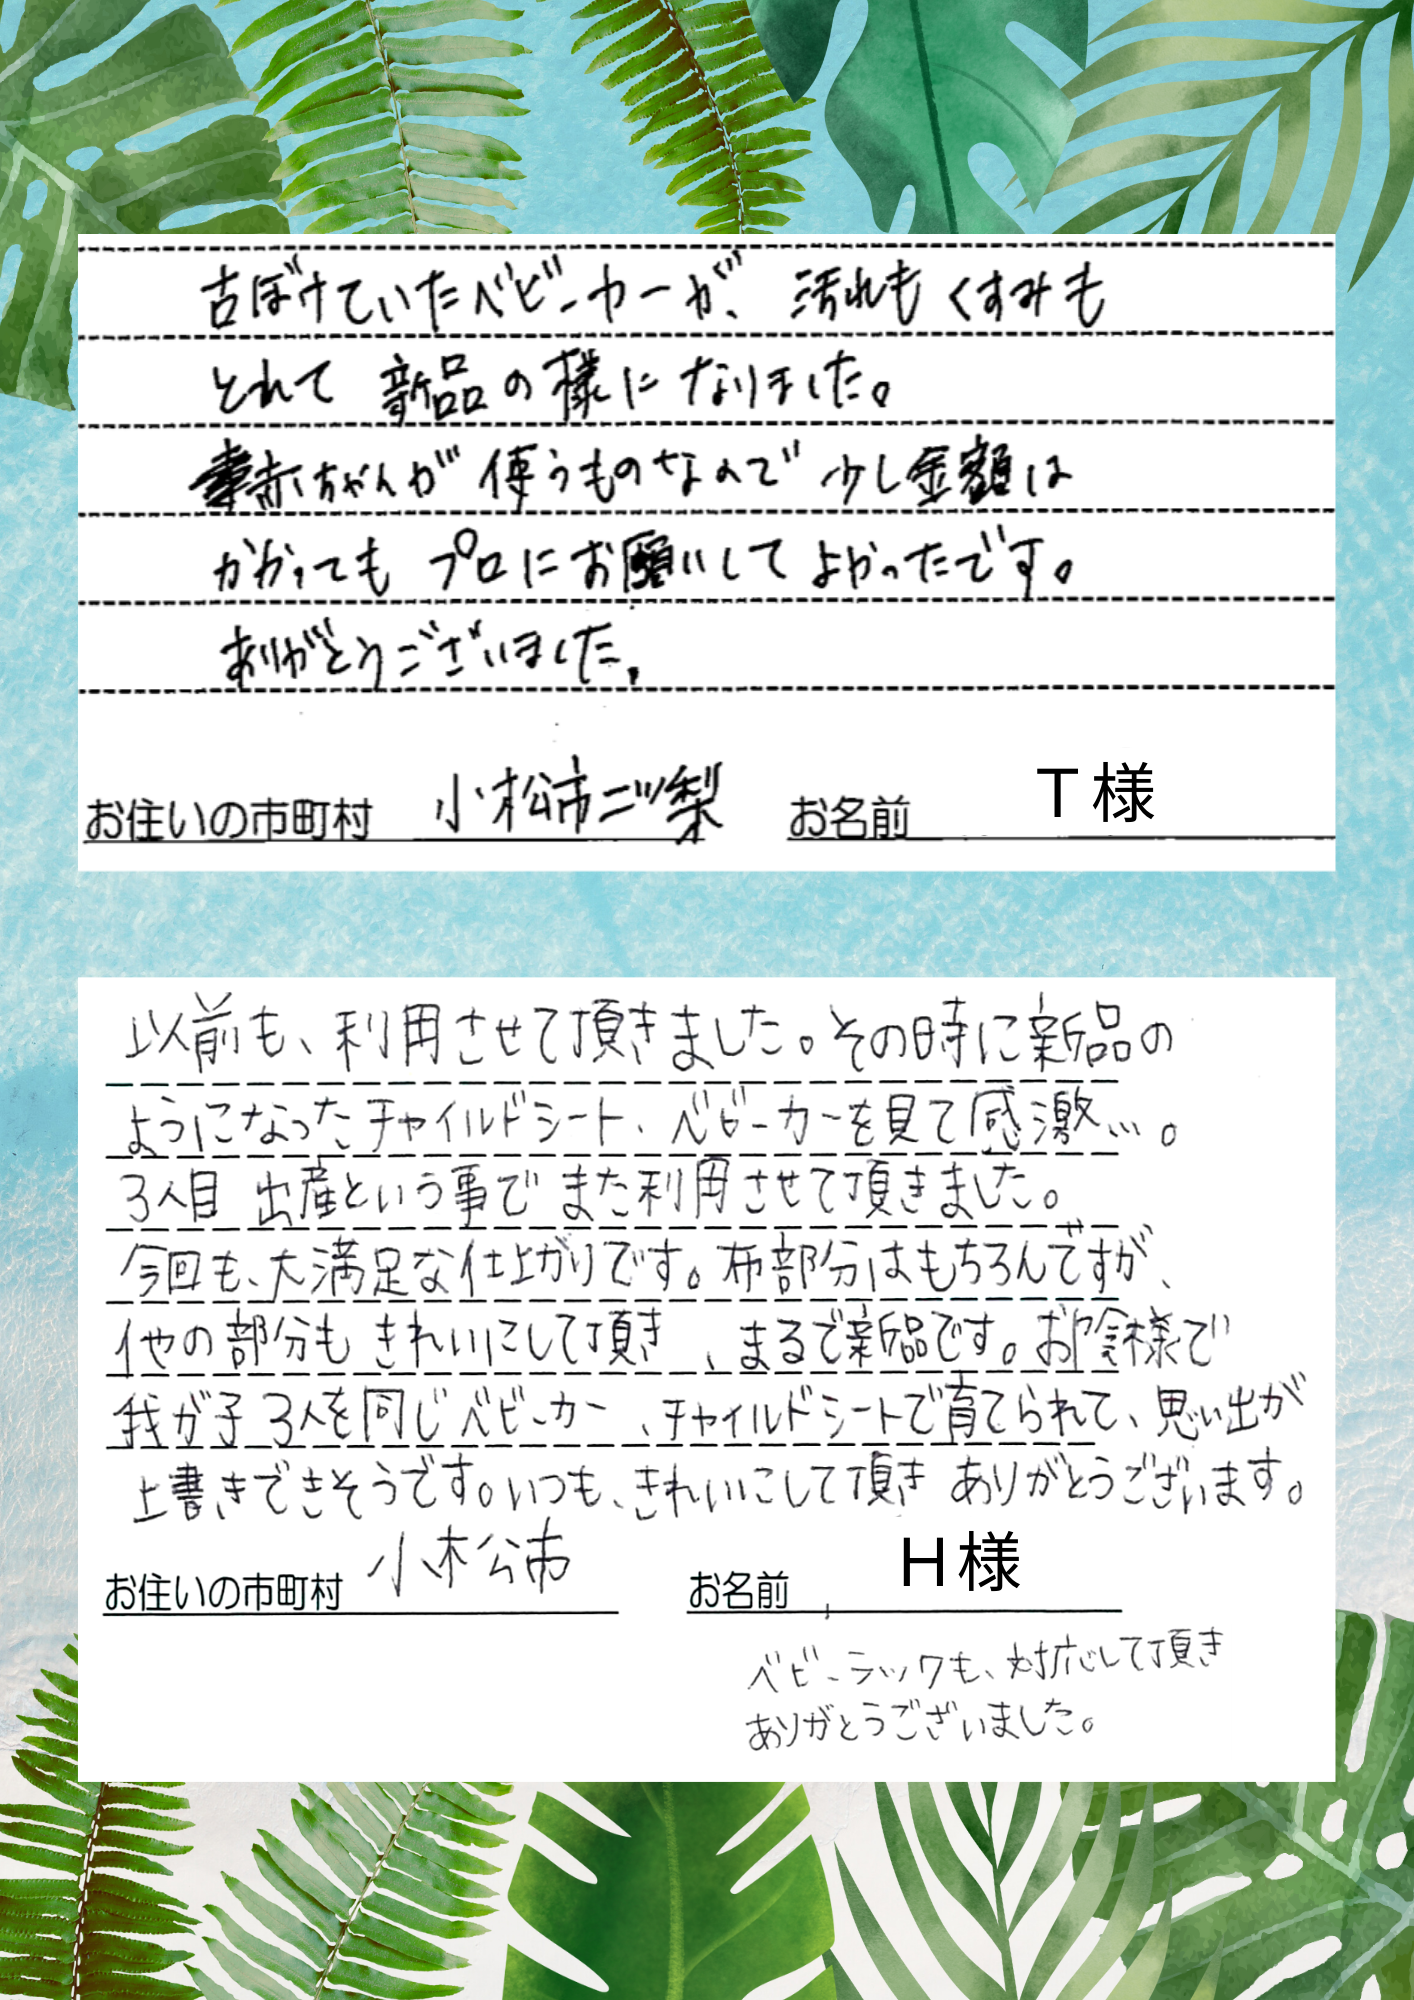 古ぼけていたベビーカーが、汚れもくすみも
とれて 新品の様になりました。
赤ちゃんが 使うものなので 少し金額は
かかっても プロにお願いして よかったです。
ありがとうございました。
お住いの市町村 小松市二ツ梨 お名前 T様
以前も、利用させて頂きました。その時に新品の
ようになったチャイルドシート、ベビーカーを見て感激…。
3人目 出産という事で また利用させて頂きました。
今回も、大満足な仕上がりです。布部分はもちろんですが、
他の部分も きれいにして頂き、まるで新品です。お陰様で
我が子3人を同じベビーカー、チャイルドシートで育てられて、思い出が
上書きできそうです。いつも、きれいにして頂き ありがとうございます。
お住いの市町村 小松市 お名前 H様
ベビーラックも、対応して頂き
ありがとうございました。